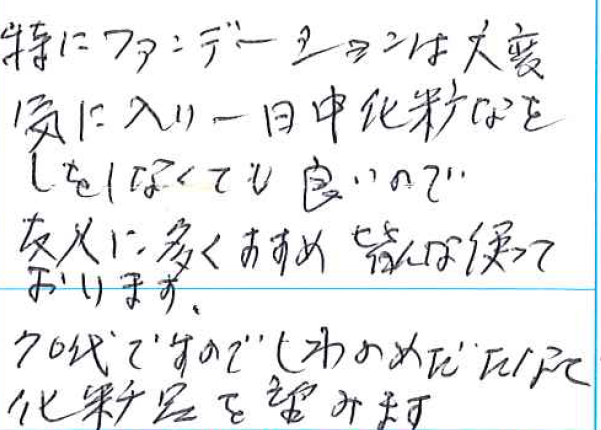 特にファンデーションは大変
気に入り一日中化粧なを
しをしなくても良いので
友人に多くすすめ皆んな使って
おります。
70代ですのでしわのめだたなくて
化粧品を望みます